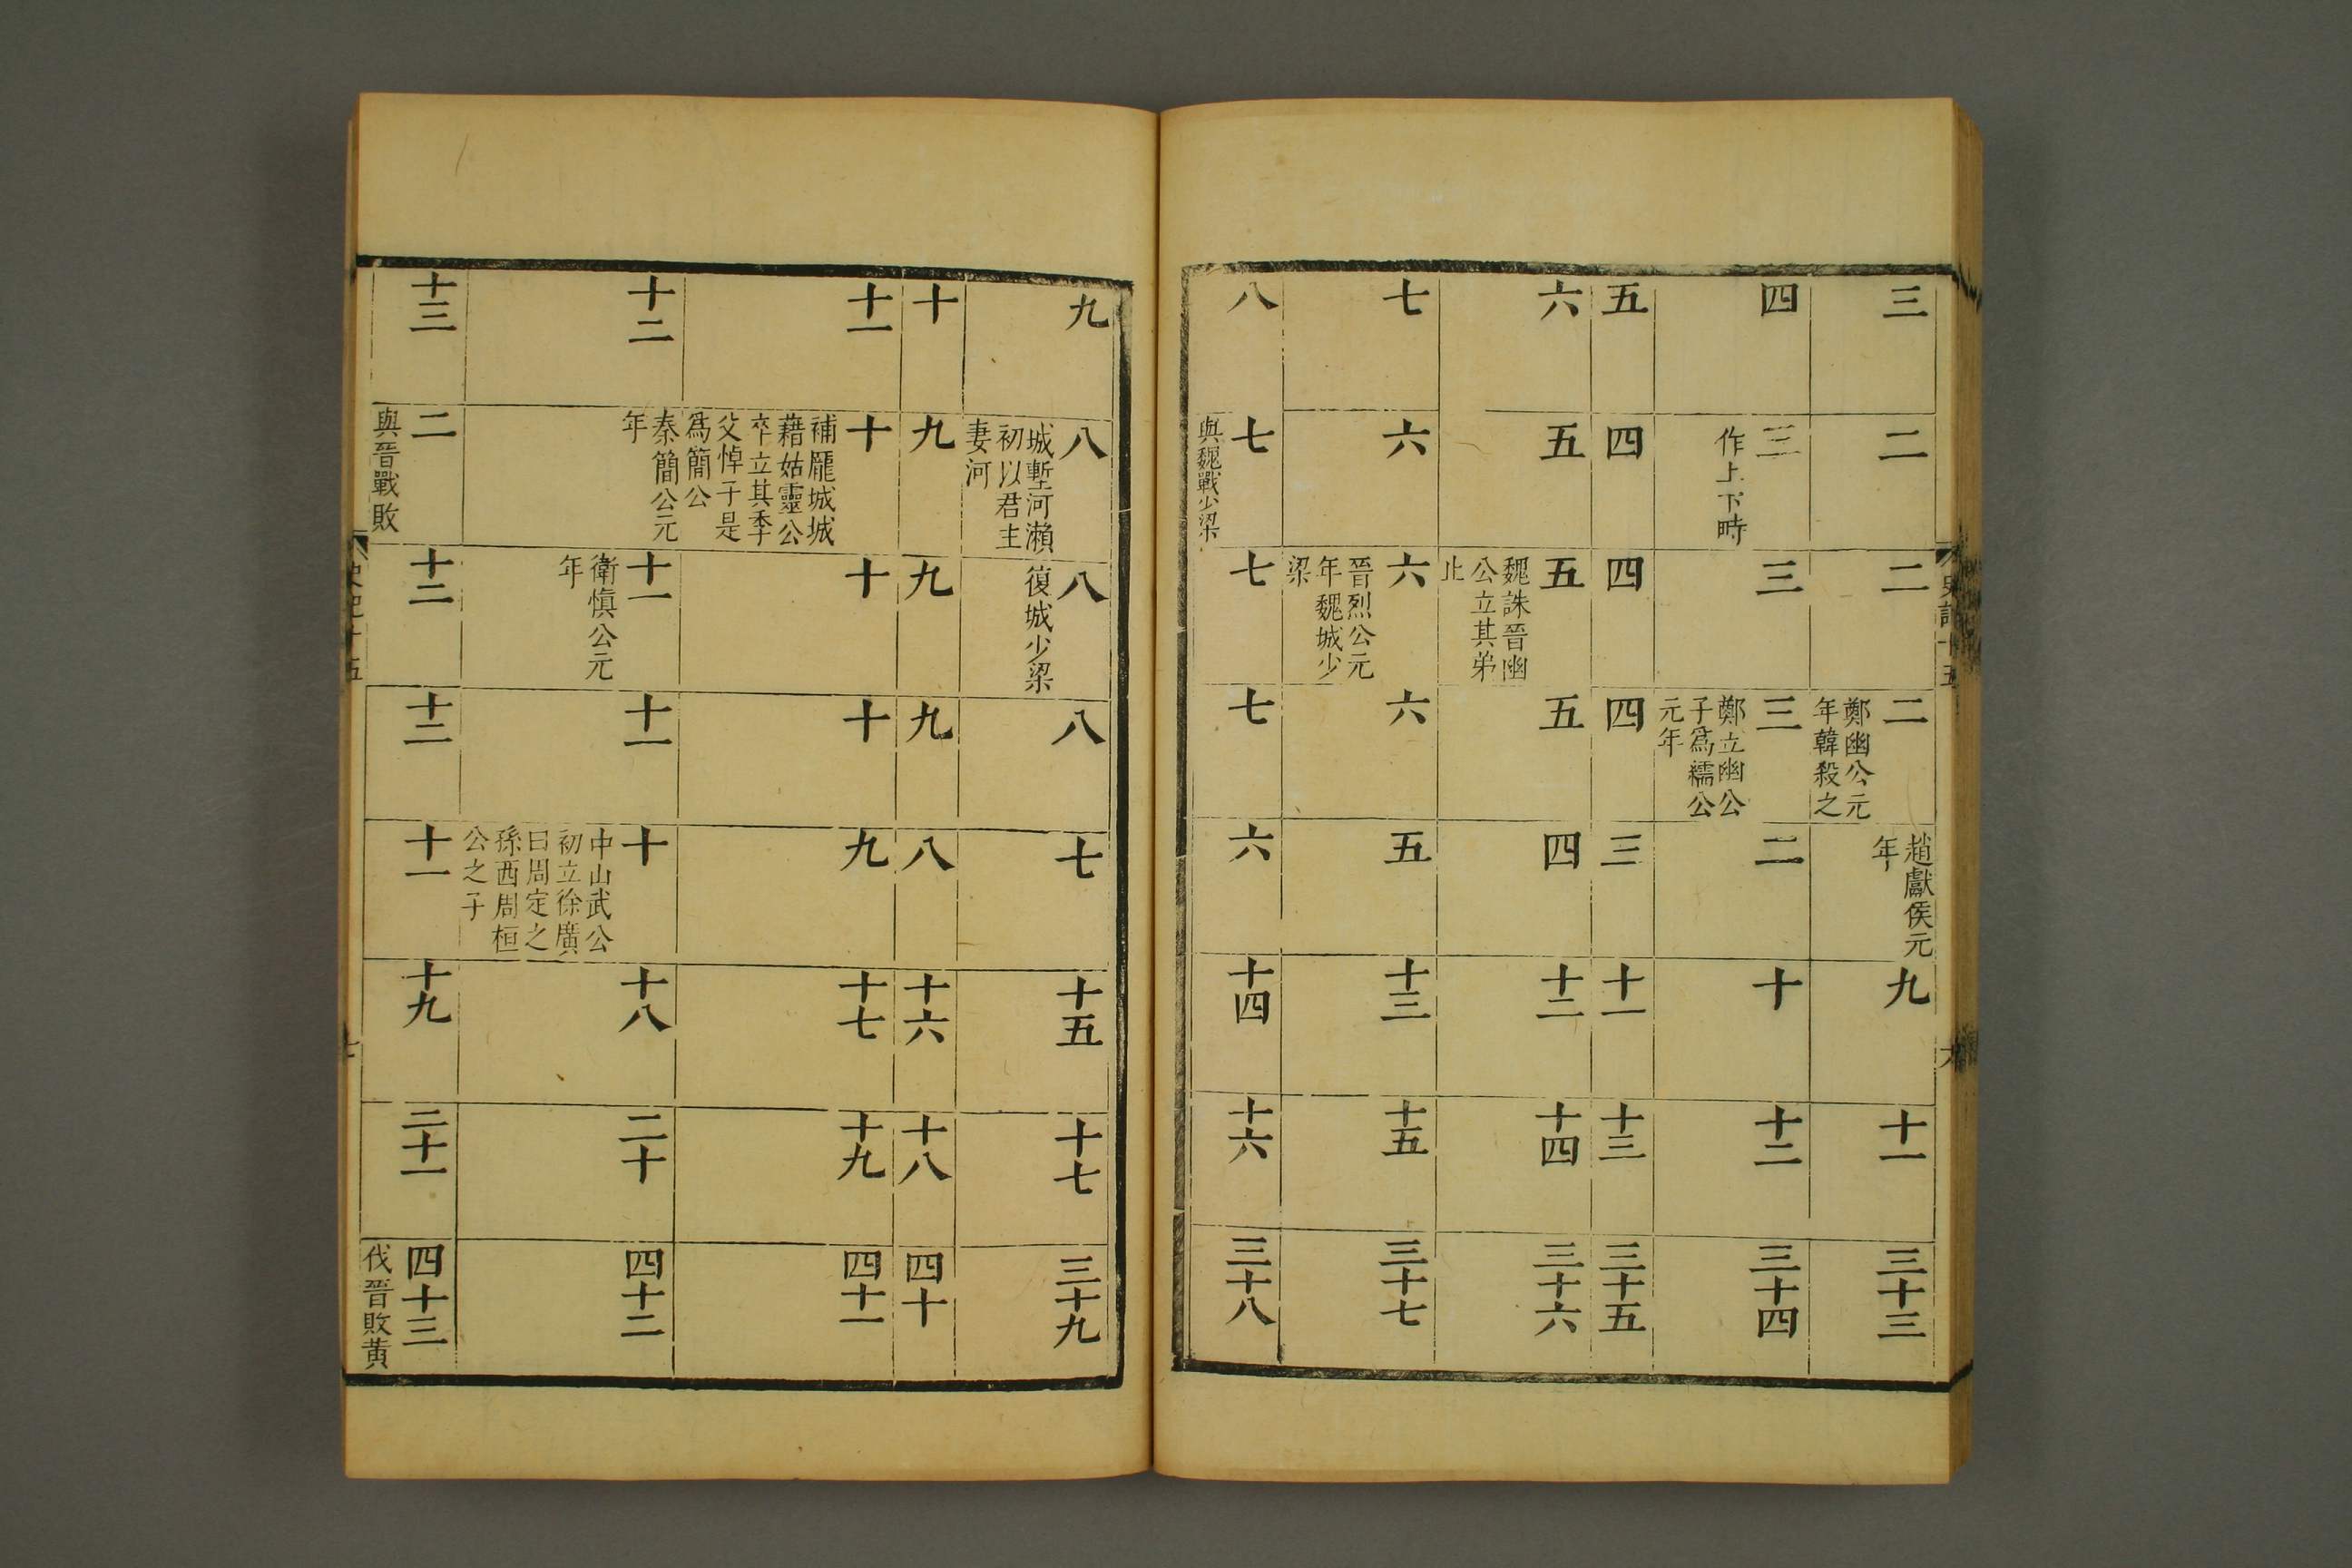 史記十五
六
三
二
二
二
鄭幽公元
年韓殺之
趙獻侯元
年
九
十一
三十三
四
三
作上下時
三
三
鄭立幽公
子爲繻公
元年
二
十
十二
三十四
五
四
四
四
三
十一
十三
三十五
六
五
五
魏誅晉幽
公立其弟
止
五
四
十二
十四
三十六
七
六
六
晉烈公元
年魏城少
梁
六
五
十三
十五
三十七
八
七
與魏戰少梁
七
七
六
十四
十六
三十八
九
八
城塹河瀨
初以君主
妻河
八
復城少梁
八
七
十五
十七
三十九
十
九
九
九
八
十六
十八
四十
十一
十
補龐城城
藉姑靈公
卒立其季
父悼子是
爲簡公
十
十
九
十七
十九
四十一
十二
秦簡公元
年
十一
衛愼公元
年
十一
十
中山武公
初立徐廣
曰周定之
孫西周桓
公之子
十八
二十
四十二
十三
二
與晉戰敗
十二
十二
十一
十九
二十一
四十三
伐晉敗黃
史記十五
七